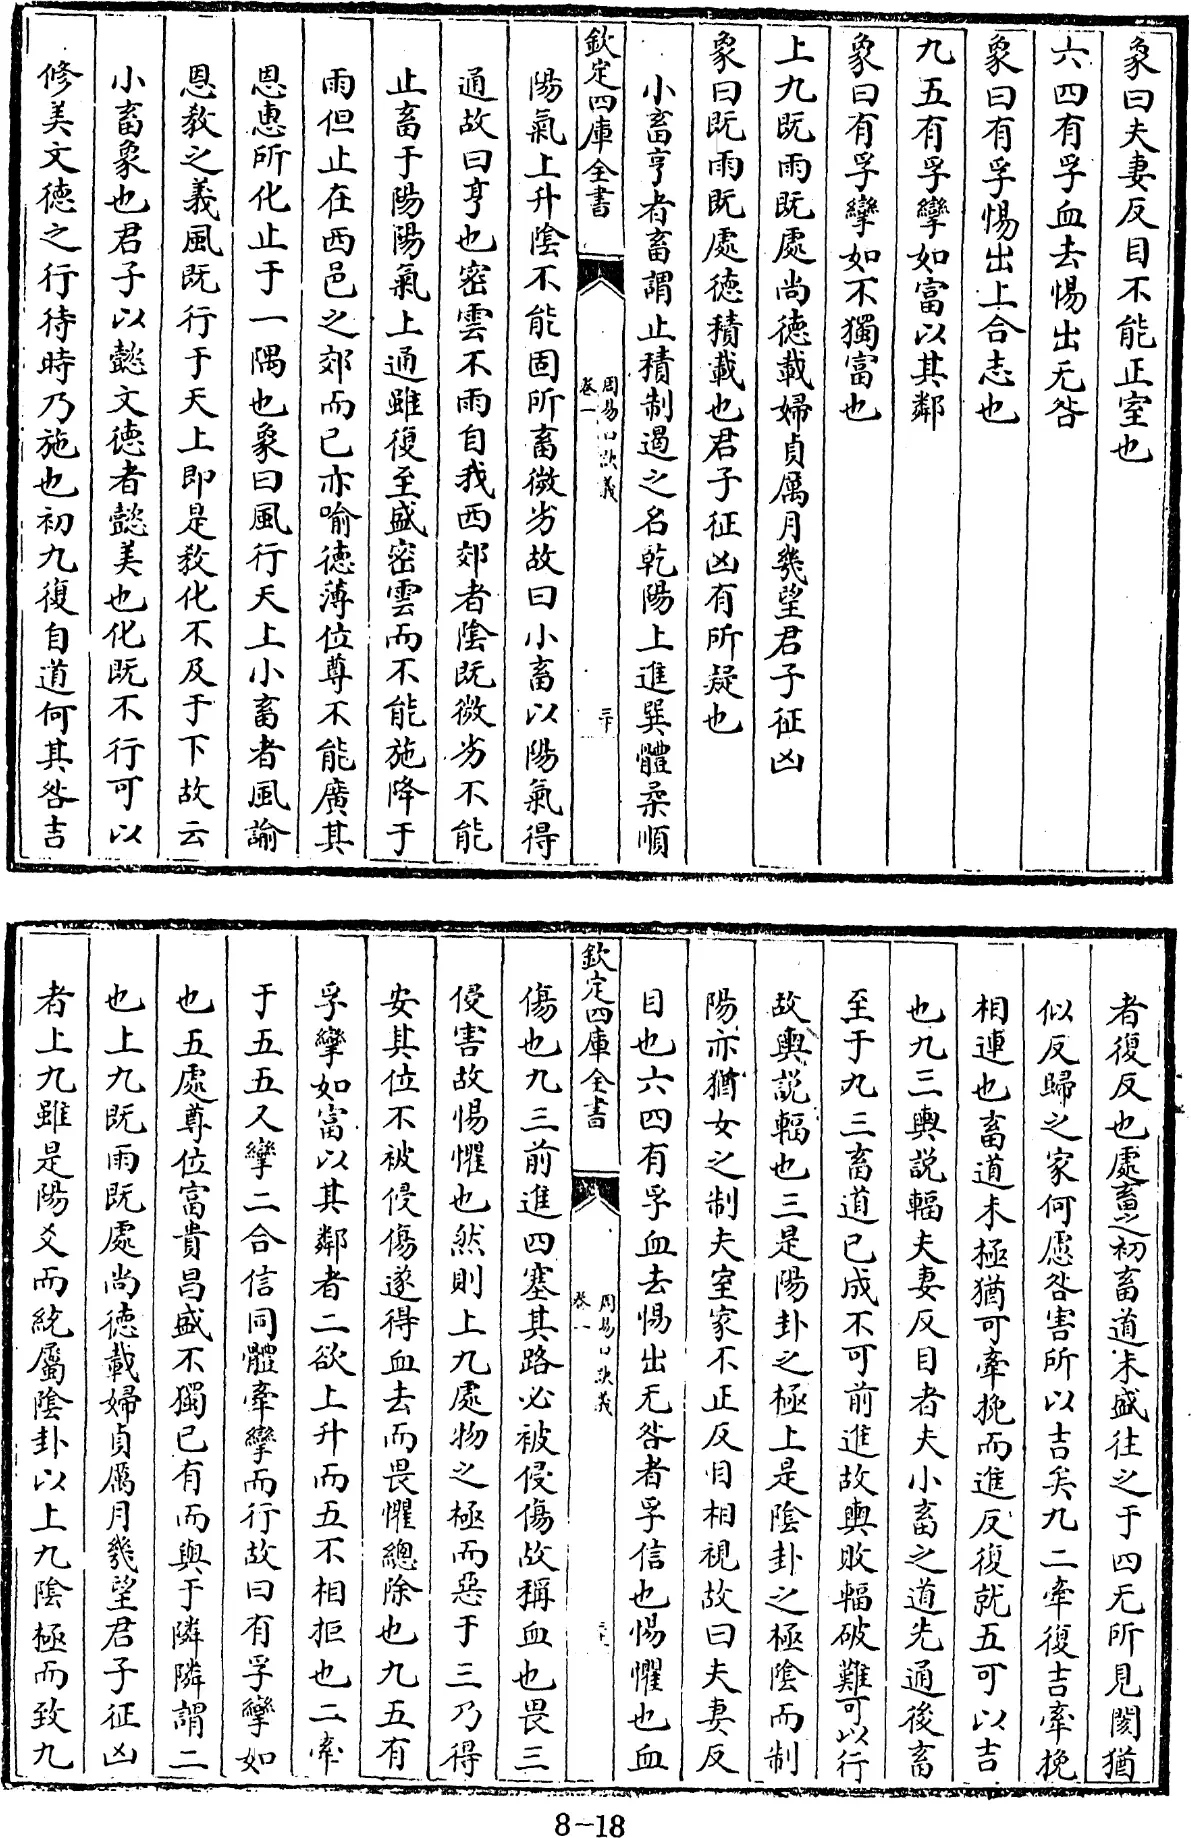 象曰夫妻反目不能正室也
六四有孚血去惕出无咎
象曰有孚惕出上合志也
九五有孚攣如富以其鄰
象曰有孚攣如不獨富也
上九既雨既處尚德載婦貞厲月幾望君子征凶
象曰既雨既處德積載也君子征凶有所疑也
小畜亨者畜謂止積制遏之名乾陽上進巽體柔順
欽定四庫全書
周易口訣義
卷一
三十
陽氣上升陰不能固所畜微劣故曰小畜以陽氣得
通故曰亨也密雲不雨自我西郊者陰既微劣不能
止畜于陽陽氣上通雖復至盛密雲而不能施降于
雨但止在西邑之郊而已亦喻德薄位尊不能廣其
恩惠所化止于一隅也象曰風行天上小畜者風諭
恩教之義風既行于天上即是教化不及于下故云
小畜象也君子以懿文德者懿美也化既不行可以
修美文德之行待時乃施也初九復自道何其咎吉
者復反也處畜之初畜道未盛往之于四无所見閡猶
似反歸之家何慮咎害所以吉矣九二牽復吉牽挽
相連也畜道未極猶可牽挽而進反復就五可以吉
也九三輿説輻夫妻反目者夫小畜之道先通後畜
至于九三畜道已成不可前進故輿敗輻破難可以行
故輿説輻也三是陽卦之極上是陰卦之極陰而制
陽亦猶女之制夫室家不正反目相視故曰夫妻反
目也六四有孚血去惕出无咎者孚信也惕懼也血
欽定四庫全書
周易口訣義
卷一
傷也九三前進四塞其路必被侵傷故稱血也畏三
侵害故惕懼也然則上九處物之極而惡于三乃得
安其位不被侵傷遂得血去而畏懼總除也九五有
孚攣如富以其鄰者二欲上升而五不相拒也二牽
于五五又攣二合信同體牽攣而行故曰有孚攣如
也五處尊位富貴昌盛不獨已有而與于隣隣謂二
也上九既雨既處尚德載婦貞厲月幾望君子征凶
者上九雖是陽爻而統屬陰卦以上九陰極而致九
8-18